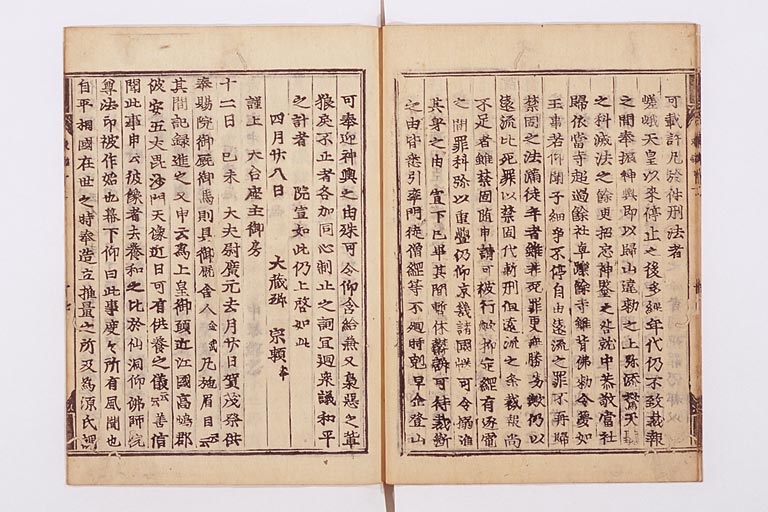 可載許凡於件刑法者
嵯峨天皇以來停止之後多經年代仍不致裁報
之間奉振神輿即以歸山違勅之上弥添驚天聽
之科減法之餘更招忘神鑒之咎就中恭敬當社
歸依當寺起過餘社卓躒餘寺雖背佛勅令憂如
王事若仰聞子細爭不停自由遠流之罪不再歸
禁固之法滿徒年者雖非死罪更無勝劣歟仍以
遠流比死罪以禁固代斬刑但遠流之条裁報尚
不足者雖禁固随申請可被行歟抑定綱有逐電
之聞罪科弥以重疊仍仰京畿諸國慥可令搦進
其身之由 宣下已畢其間暫休鬱訴可待裁断
之由皆悉引率門徒僧綱等不廻時剋早企登山
可奉迎神輿之由殊可令仰含給兼又梟惡之輩
狼戻不止者各加同心制止之詞宜廻衆議和平
之計者 院宣如此仍上啓如此
四月廿八日 大蔵卿 宗頼奉
謹上 天台座主御房
十二日 己未 大夫尉廣元去月廿日賀茂祭供
奉賜院御厩御馬則具御厩舎人金武凡施眉目云云
其間記録進之又申云為上皇御願近江國高嶋郡
彼安五丈毘沙門天像近日可有供養之儀云云善信
聞此事申云彼像者去養和之比於仙洞仰佛師院
尊法印被作始也幕下仰曰此事度々所有風聞也
自平相國在世之時奉造立推量之所及為源氏調